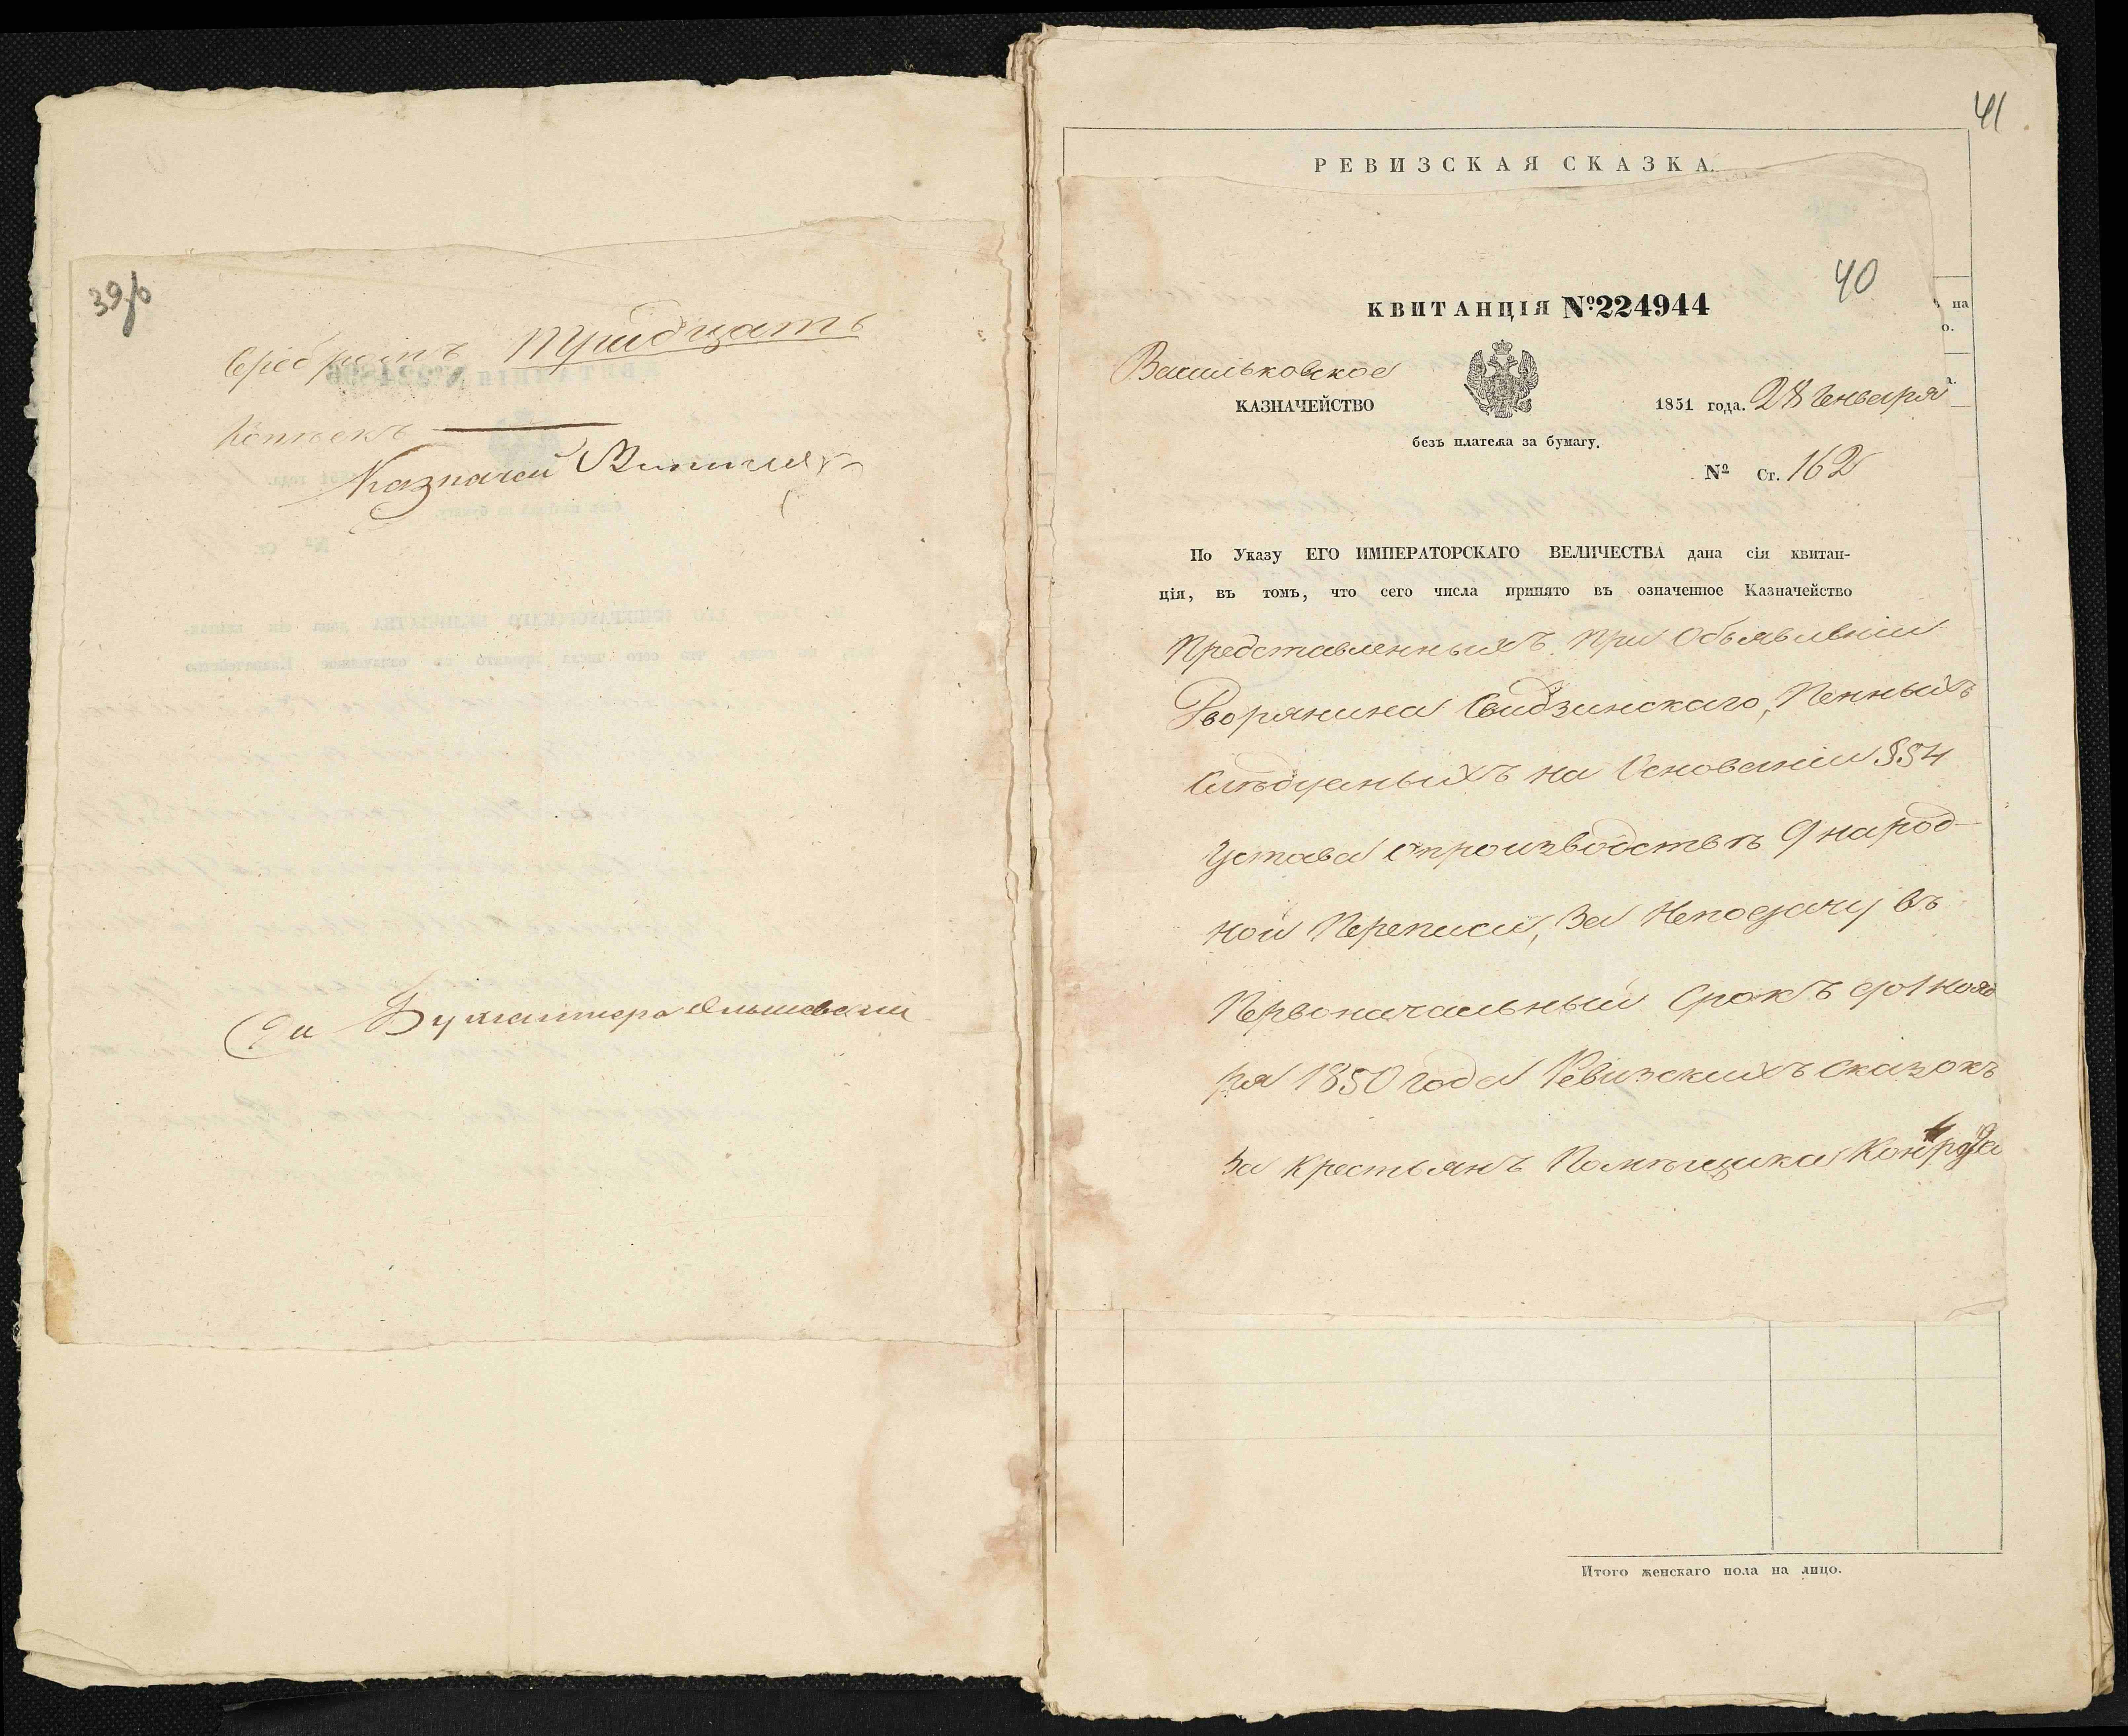 39об
серебромъ тридцать
копѣекъ
Казначей
За Бухгалтера
41
РЕВИЗСКАЯ СКАЗКА.
на
о.
40
КВИТАНЦІЯ №224944
Васильковское
КАЗНАЧЕЙСТВО
1851 года. 28 Генваря
безъ платежа за бумагу.
№ Ст. 162
По Указу ЕГО ИМПЕРАТОРСКАГО ВЕЛИЧЕСТВА дана сія квитан-
ція, въ томъ, что сего числа принято въ означенное Казначейство
Представленныхъ при Объявленіи
Дворянина Свидзинскаго, Пенныхъ
Слѣдуемыхъ на Основаніи §54
Устава о производствѣ 9 народ-
ной Переписи, За Неподачу въ
Первоначальный Срокъ до 1 нояб
ря 1850 года Ревизскихъ Сказокъ
За крестьянъ Помѣщика Конрада
Итого женскаго пола на лицо.